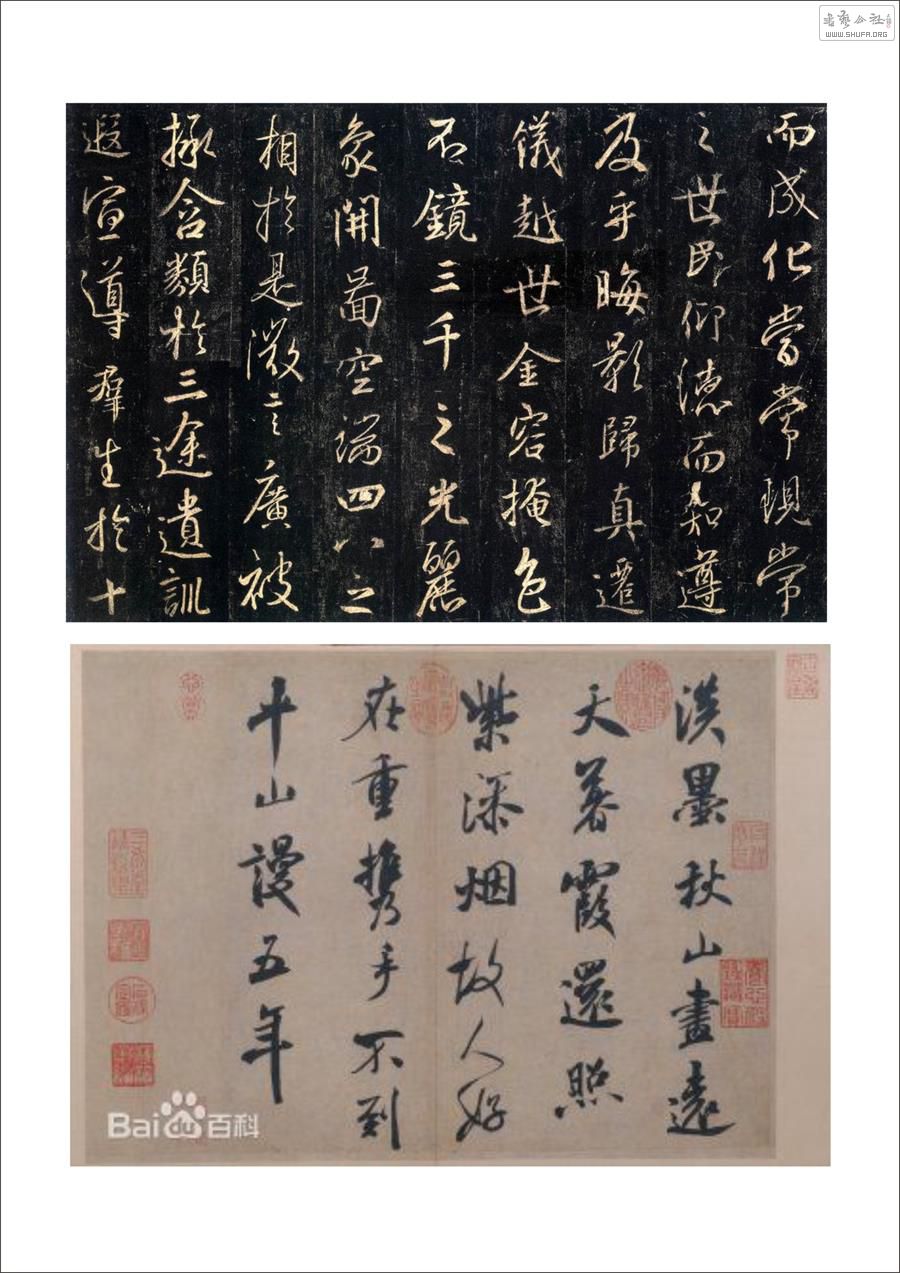 書藝公社
WWW.SHUFA.ORG
而成化當常現常
之世民仰德而知遵
及乎晦影歸真遷
儀越世金容掩色
不鏡三千之光麗
象開圖空端四八之
相於是微言廣被
拯含類於三途遺訓
遐宣導群生於十
淡墨秋山畫遠
天暮霞還照
紫添烟故人好
在重攜手不到
平山謾五年
Baidu百科